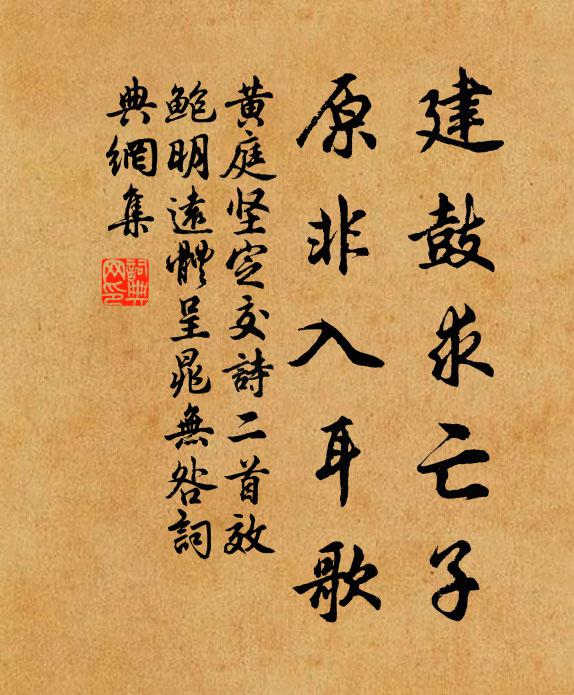 建鼓求亡子
原非入耳歌
黄庭坚定交詩二首效
鮑明遠體呈晁無咎詞
典網集
詞典网印